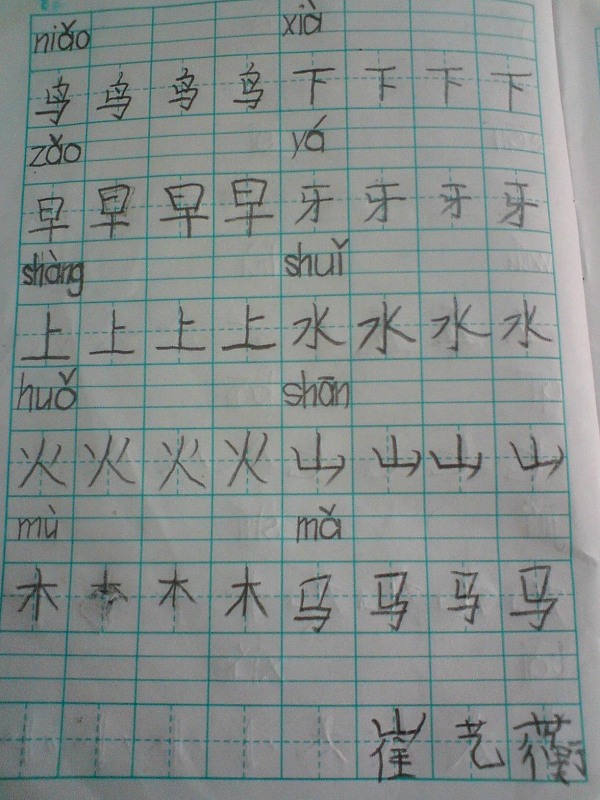 niǎo xià
鸟 鸟 鸟 鸟 下 下 下 下
zǎo yá
早 早 早 早 牙 牙 牙 牙
shàng shuǐ
上 上 上 上 水 水 水 水
huǒ shān
火 火 火 火 山 山 山 山
mù mǎ
木 木 木 木 马 马 马 马
崔 艺 蘅